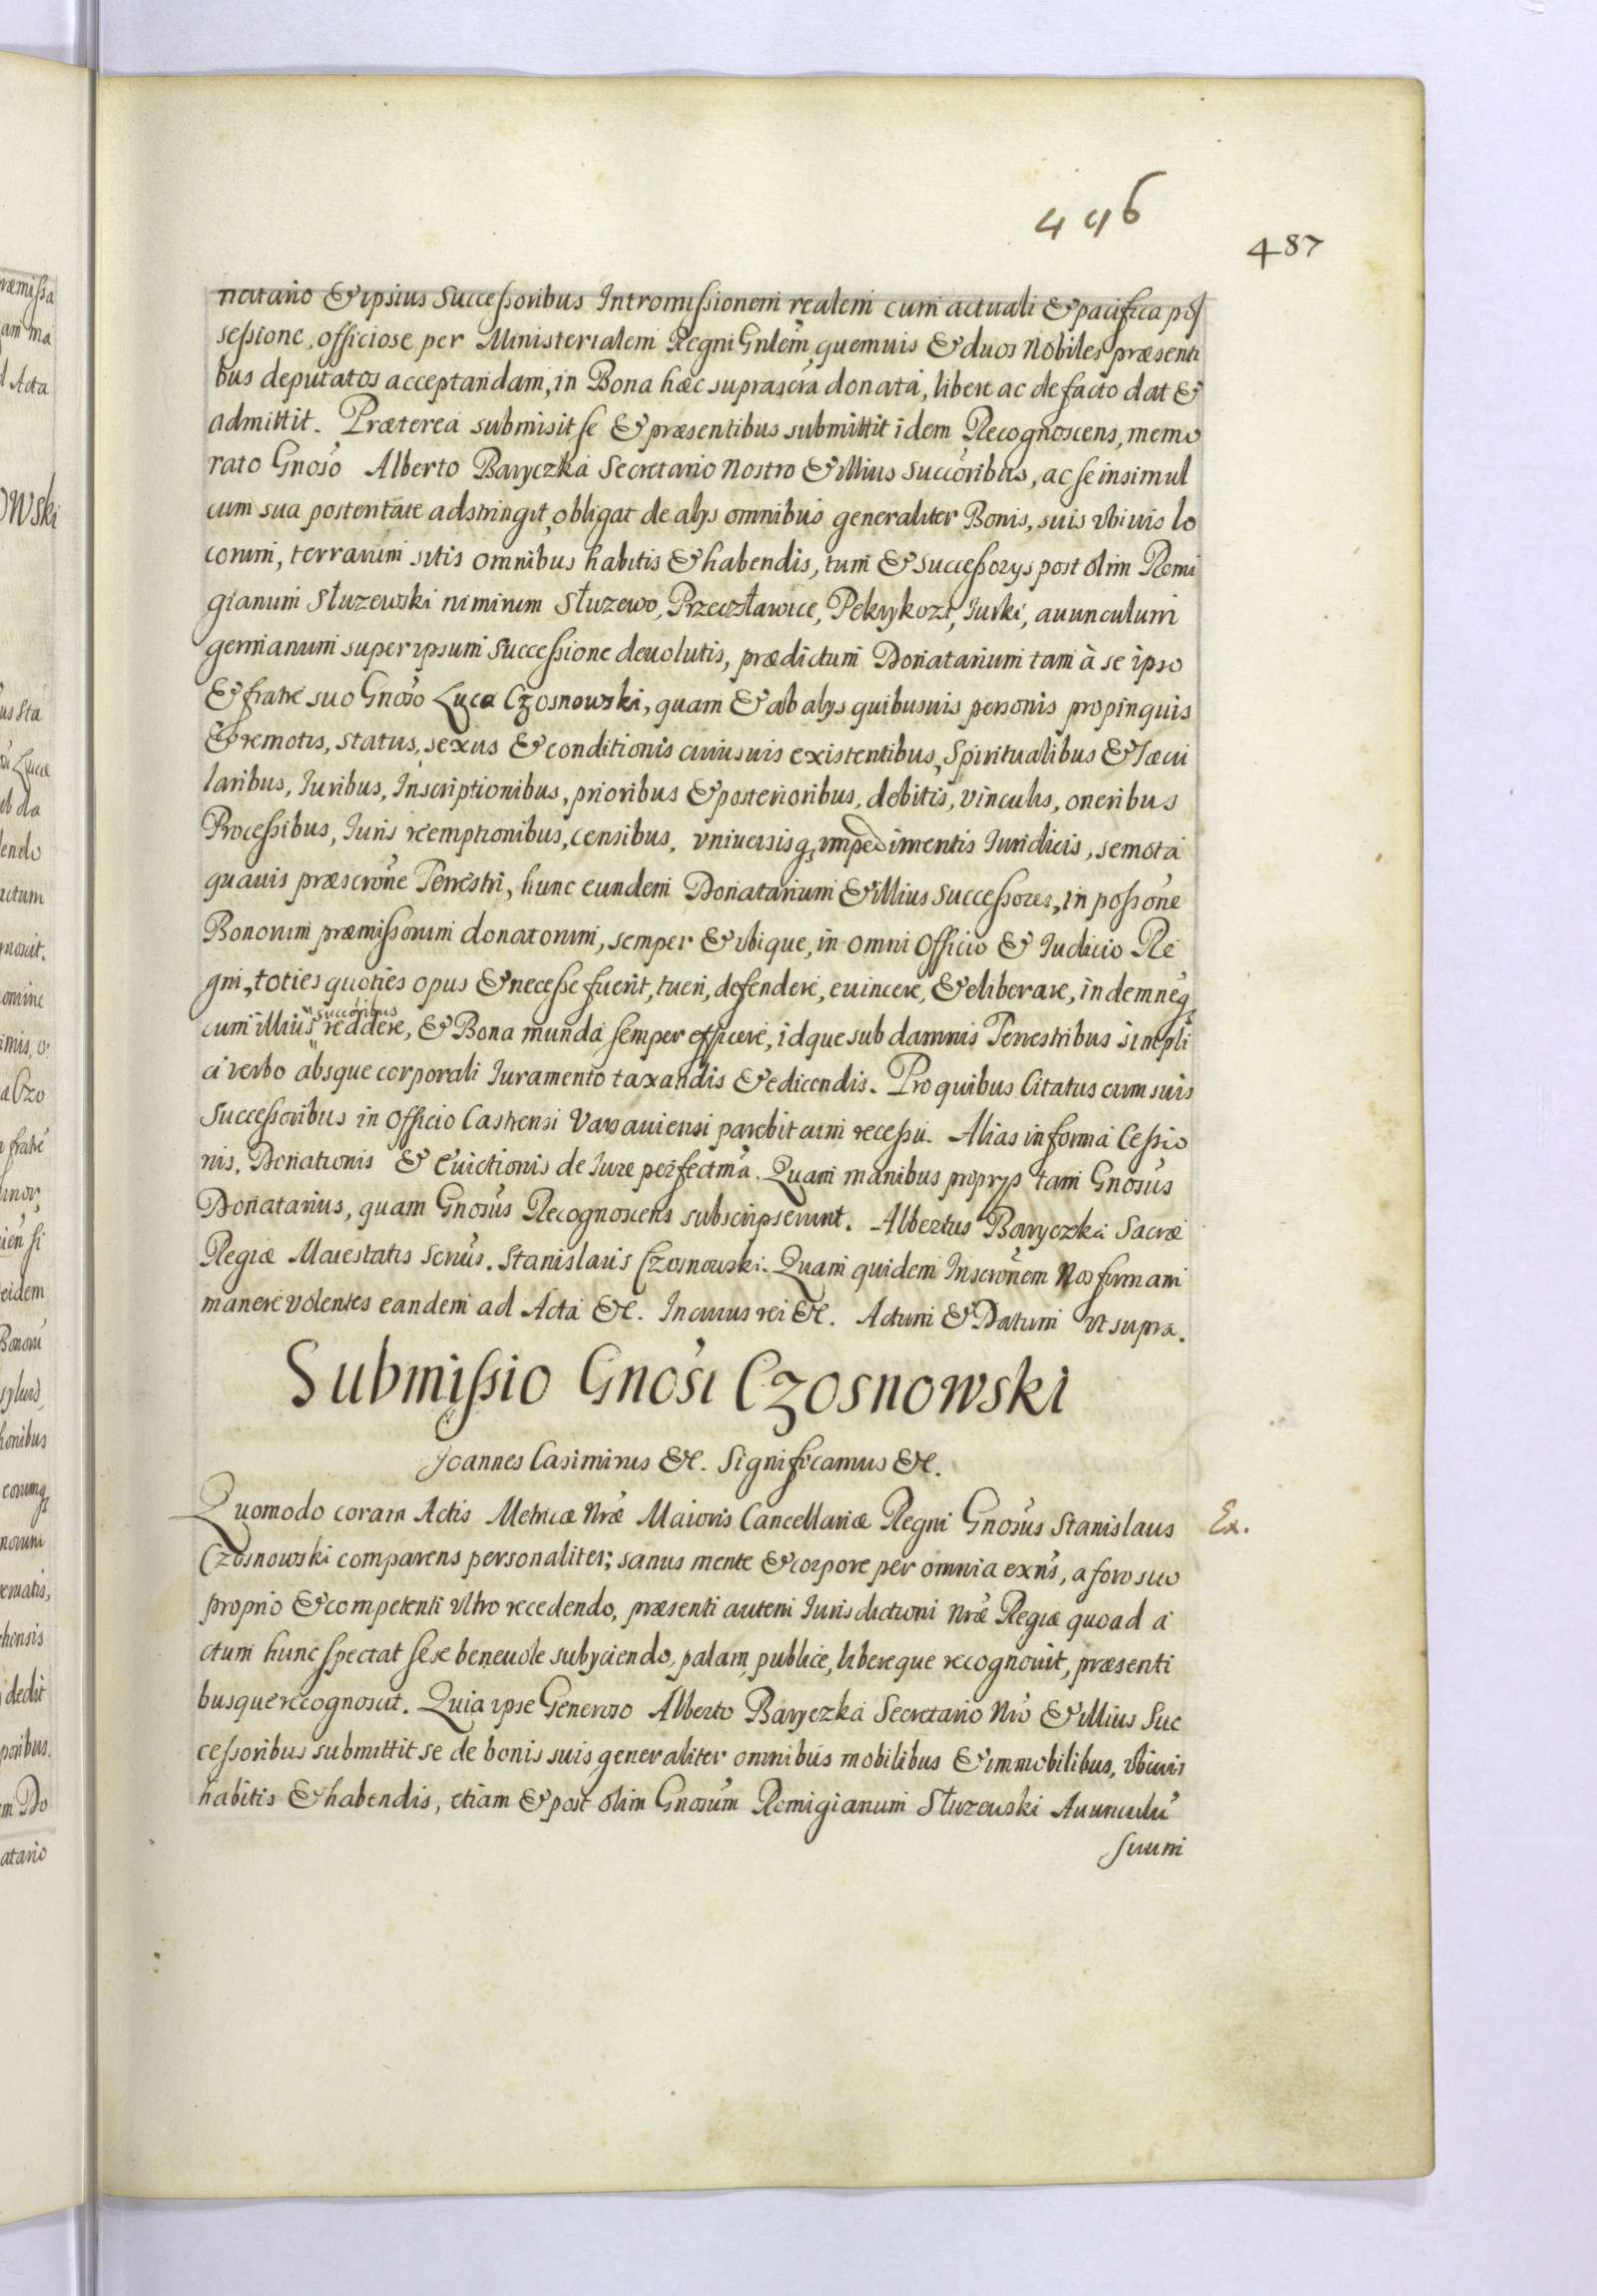 496
487
natario & ipsius Successoribus Intromissionem realem cum actuali & pacifica pos
sessione, officiose per Ministerialem Regni Gnlem quemuis & duos Nobiles præsenti
bus deputatos acceptandam, in Bona hæc suprascra donata, libere ac de facto dat &
admittit. Præterea submisit se & præsentibus submittit idem Recognoscens, memo
rato Gnoso Alberto Baryczka Secretario Nostro & illius succoribus, ac se insimul
cum sua posteritate adstringit, obligat de alys omnibus generaliter Bonis, suis vbiuis lo
corum, terrarum sitis omnibus habitis & habendis, tum & successorys post olim Remi
gianum Służewski nimirum Służewo, Przeczławice, Pekrykozi, Iurki, auunculum
germanum super ipsum Successione deuolutis, prædictum Donatarium tam à se ipso
& fratre suo Gnoso Luca Czosnowski, quam & ab alys quibusuis personis propinquis
& remotis, status, sexus & conditionis cuiusuis existentibus, Spiritualibus & Sæcu
laribus, Iuribus, Inscriptionibus, prioribus & posterioribus, debitis, vinculis, oneribus
Processibus, Iuris reemptionibus, censibus, vniuersisq impedimentis Iuridicis, semota
quauis præscrone Terrestri, hunc eundem Donatarium & illius successores, in possone
Bonorum præmissorum donatorum, semper & vbique, in omni Officio & Iudicio Re
gni, toties quoties opus & necesse fuerit, tueri, defendere, euincere, & eliberare, indemneq
succoribus
cum illius reddere, & Bona munda semper efficere, idque sub damnis Terrestribus simpli
ci verbo absque corporali Iuramento taxandis & edicendis. Pro quibus Citatus cum suis
Successoribus in Officio Castrensi Varsauiensi parebit cum recessu. Alias in forma Cessio
nis, Donationis & Euictionis de Iure perfectma. Quam manibus proprys tam Gnosus
Donatarius, quam Gnosus Recognoscens subscripserunt. Albertus Baryczka Sacræ
Regiæ Maiestatis Scrius. Stanislaus Czosnowski. Quam quidem Inscronem Nos firmam
manere volentes eandem ad Acta &c. In cuius rei &c. Actum & Datum vt supra.
Submissio Gnosi Czosnowski
Joannes Casimirus &c. Significamus &c.
Quomodo coram Actis Metricæ Nræ Maioris Cancellariæ Regni Gnosus Stanislaus
Ex.
Czosnowski comparens personaliter; sanus mente & corpore per omnia exns, a foro suo
proprio & competenti vltro recedendo, præsenti autem Iurisdictioni Nræ Regiæ quoad a
ctum hunc spectat sese beneuole subyciendo, palam, publice, libereque recognouit, præsenti
busque recognoscit. Quia ipse Generoso Alberto Baryczka Secretario Nro & illius Suc
cessoribus submittit se de bonis suis generaliter omnibus mobilibus & immobilibus, vbiuis
habitis & habendis, etiam & post olim Gnosum Remigianum Służewski Auunculu
suum